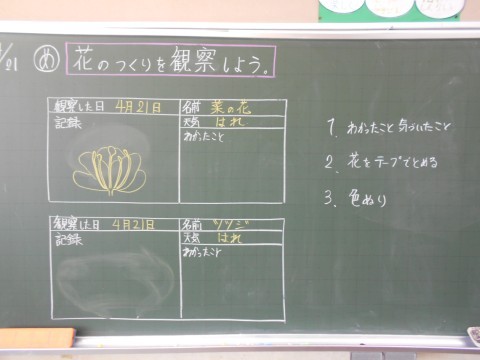 /21 め 花のつくりを観察しよう。
観察した日 4月21日 名前 菜の花
記録 天気 はれ
わかったこと
観察した日 4月21日 名前 ツツジ
記録 天気 はれ
わかったこと
1. わかったこと 気づいたこと
2. 花をテープでとめる
3. 色ぬり